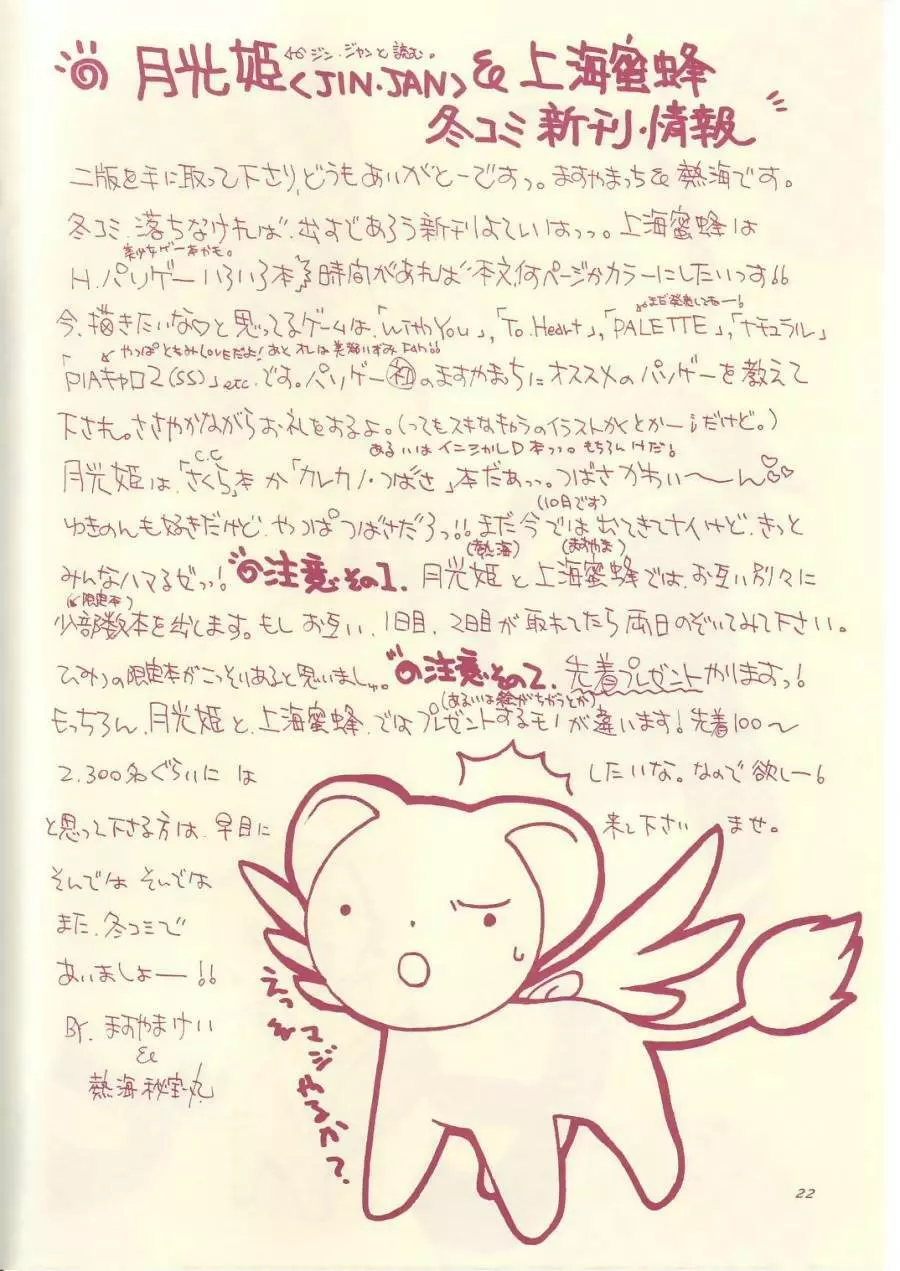 月光姫〈JIN・JAN〉& 上海蜜蜂
ジン・ジャンと読む。
冬コミ新刊・情報
二版を手に取って下さり、どうもあいがとーですっ。ますやまっち&熱海です。
冬コミ、落ちなければ、出すであろう新刊よていはっっ。上海蜜蜂は
美少女ゲー本かも。
H.パソゲーいろいろ本 時間があれば本文何ページかカラーにしたいっす!!
まだ発売してねー!
今、描きたいな♡と思ってるゲームは、「With You」,「To Heart」,「PALETTE」,「ナチュラル」
やっぱともみLOVEだよ!あと オレは美樹いずみFAN!!
「PIAキャロ2(SS)」etc.です。パソゲー初のますやまっちにオススメのパソゲーを教えて
下され。ささやかながらお礼をするよ。(ってもスキなキャラのイラストかくとかーだけど。)
C.C あるいは イニシャルD 本っっ。もちろんけだ!
月光姫は、「さくら」本か「カレカノ・つばさ」本だぁっっ。つばさかわいぃ〜〜ん♡♡
(10日です)
ゆきのんも好きだけど、やっぱつばさだろっ!! まだ今では出てきてナイけど、きっと
(熱海) (ますやま)
みんなハマるぜっっ! 注意その1. 月光姫と上海蜜蜂では、お互い別々に
(限定本)
少部数本を出します。もしお互い、1日目、2日目が取れてたら両日のぞいてみて下さい。
ひみつの限定本がこっそりあると思いましゅ。 注意その2. 先着プレゼントがありますっ!
(あるいは絵がちがうとか)
もっちろん、月光姫と、上海蜜蜂、ではプレゼントするモノが違います!先着100〜
2.300名ぐらいには したいな。なので欲しー!
と思って下さる方は、早目に 来て下さい ませ。
そんでは そんでは
また、冬コミで
あいましょーー!!
BY. ますやまけい
&
熱海秘宝丸
えっ マジやるか?
22